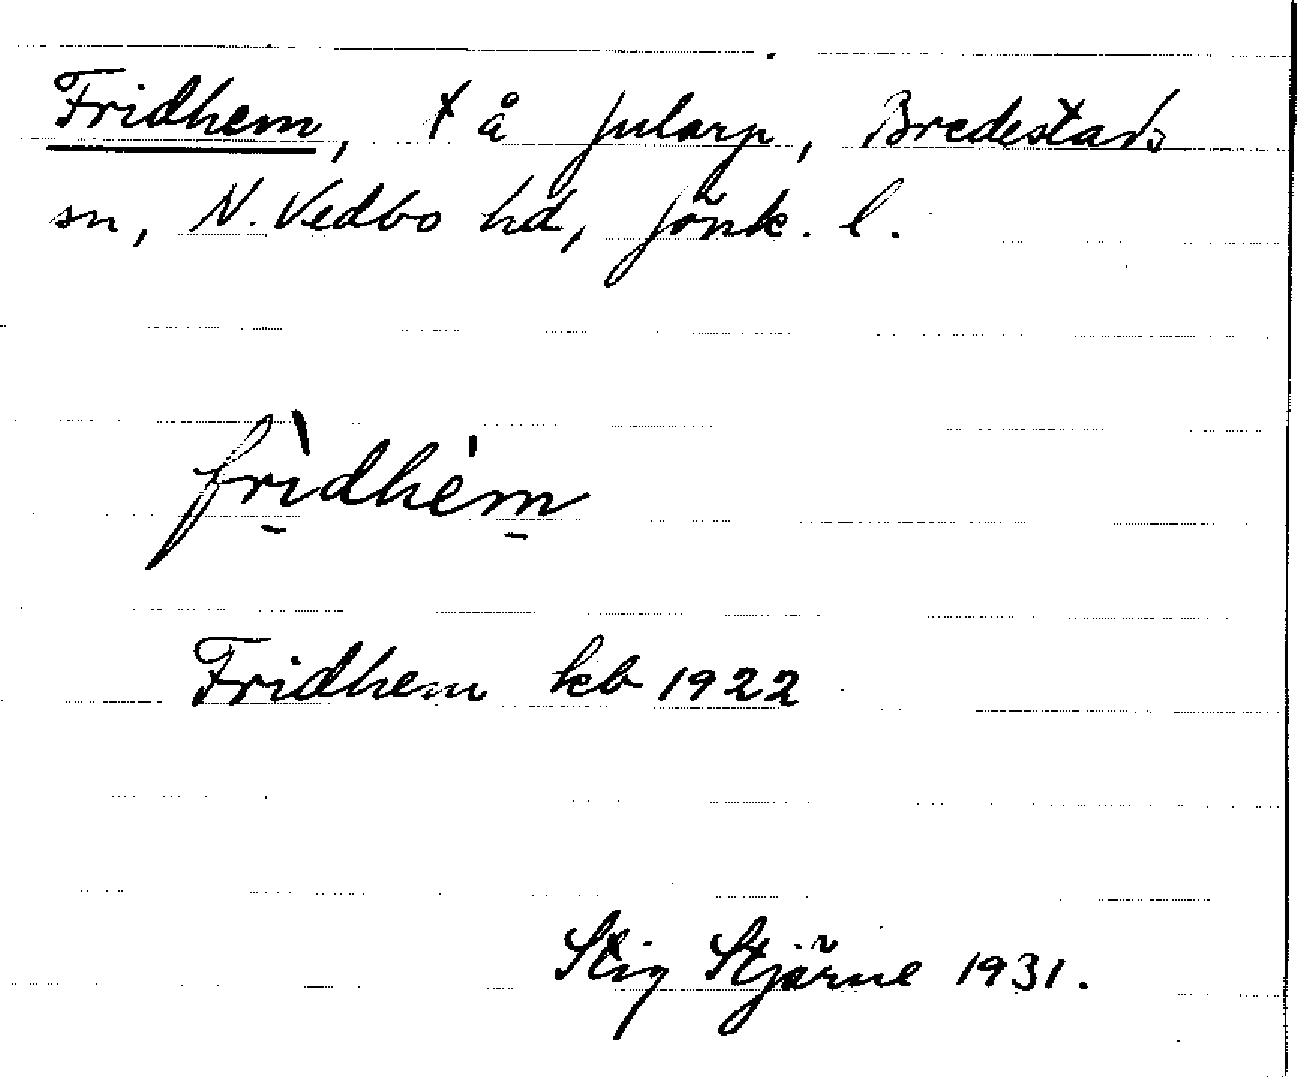 Fridhem, t å Jularp, Bredestads
sn, N. Vedbo hd, Jönk. l.
fri̱dhem̱
Fridhem kb 1922
Stig Stjärne 1931.